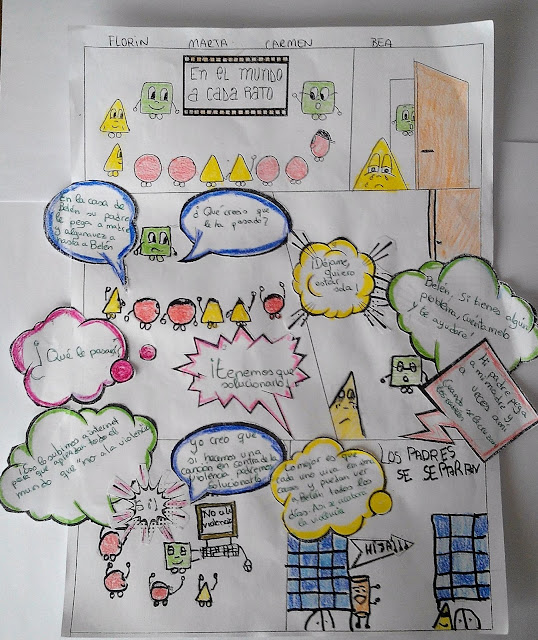 FLORIN MARTA CARMEN BEA
En el mundo
a cada rato
En la casa de
Belén su padre
le pega a madre
y alguna vez a
hasta a Belén
¿Qué creeis que
le ha pasado?
¡Déjame,
quiero
estar
sola!
Belén, si tienes algún
problema, cuéntamelo
y te ayudaré!
¿Qué le pasará?
¡tenemos que
solucionarlo!
Mi padre pega
a mi madre y
a veces a mi
Cuando
¡Eso lo subimos a internet
para que aprendan todo el
mundo que no a la violencia
yo creo que
si hacemos una
cancion en contra de la
violencia podremos
solucionarlo
Lo mejor es que
cada uno viva en una
casa y puedan ver
a Belén todos los
días. Así se acabara
la violencia
LOS PADRES
SE SEPARAN
¡Sí!
No a la
violencia
HIJA